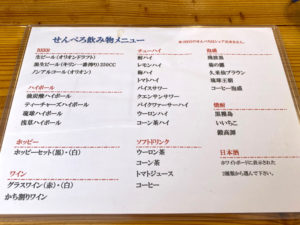 せんべろ飲み物メニュー
BEER
生ビール(オリオンドラフト)
瓶生ビール(キリン一番搾り)350CC
ノンアルコール(オリオン)
ハイボール
ティーチャーズハイボール
琉球ハイボール
浅草ハイボール
ホッピー
ホッピーセット(黒)・(白)
ワイン
グラスワイン(赤)・(白)
かち割りワイン
チューハイ
酎ハイ
レモンハイ
梅ハイ
トマトハイ
バイスサワー
クエンサンサワー
バイクァーサーハイ
ウーロンハイ
コーン茶ハイ
ソフトドリンク
ウーロン茶
コーン茶
トマトジュース
コーヒー
泡盛
残波黒
菊の露
久米仙ブラウン
琉球王朝
コーヒー泡盛
焼酎
黒霧島
いいちこ
鍛高譚
日本酒
ホワイトボードに書かれた
2種類から選んで下さい。